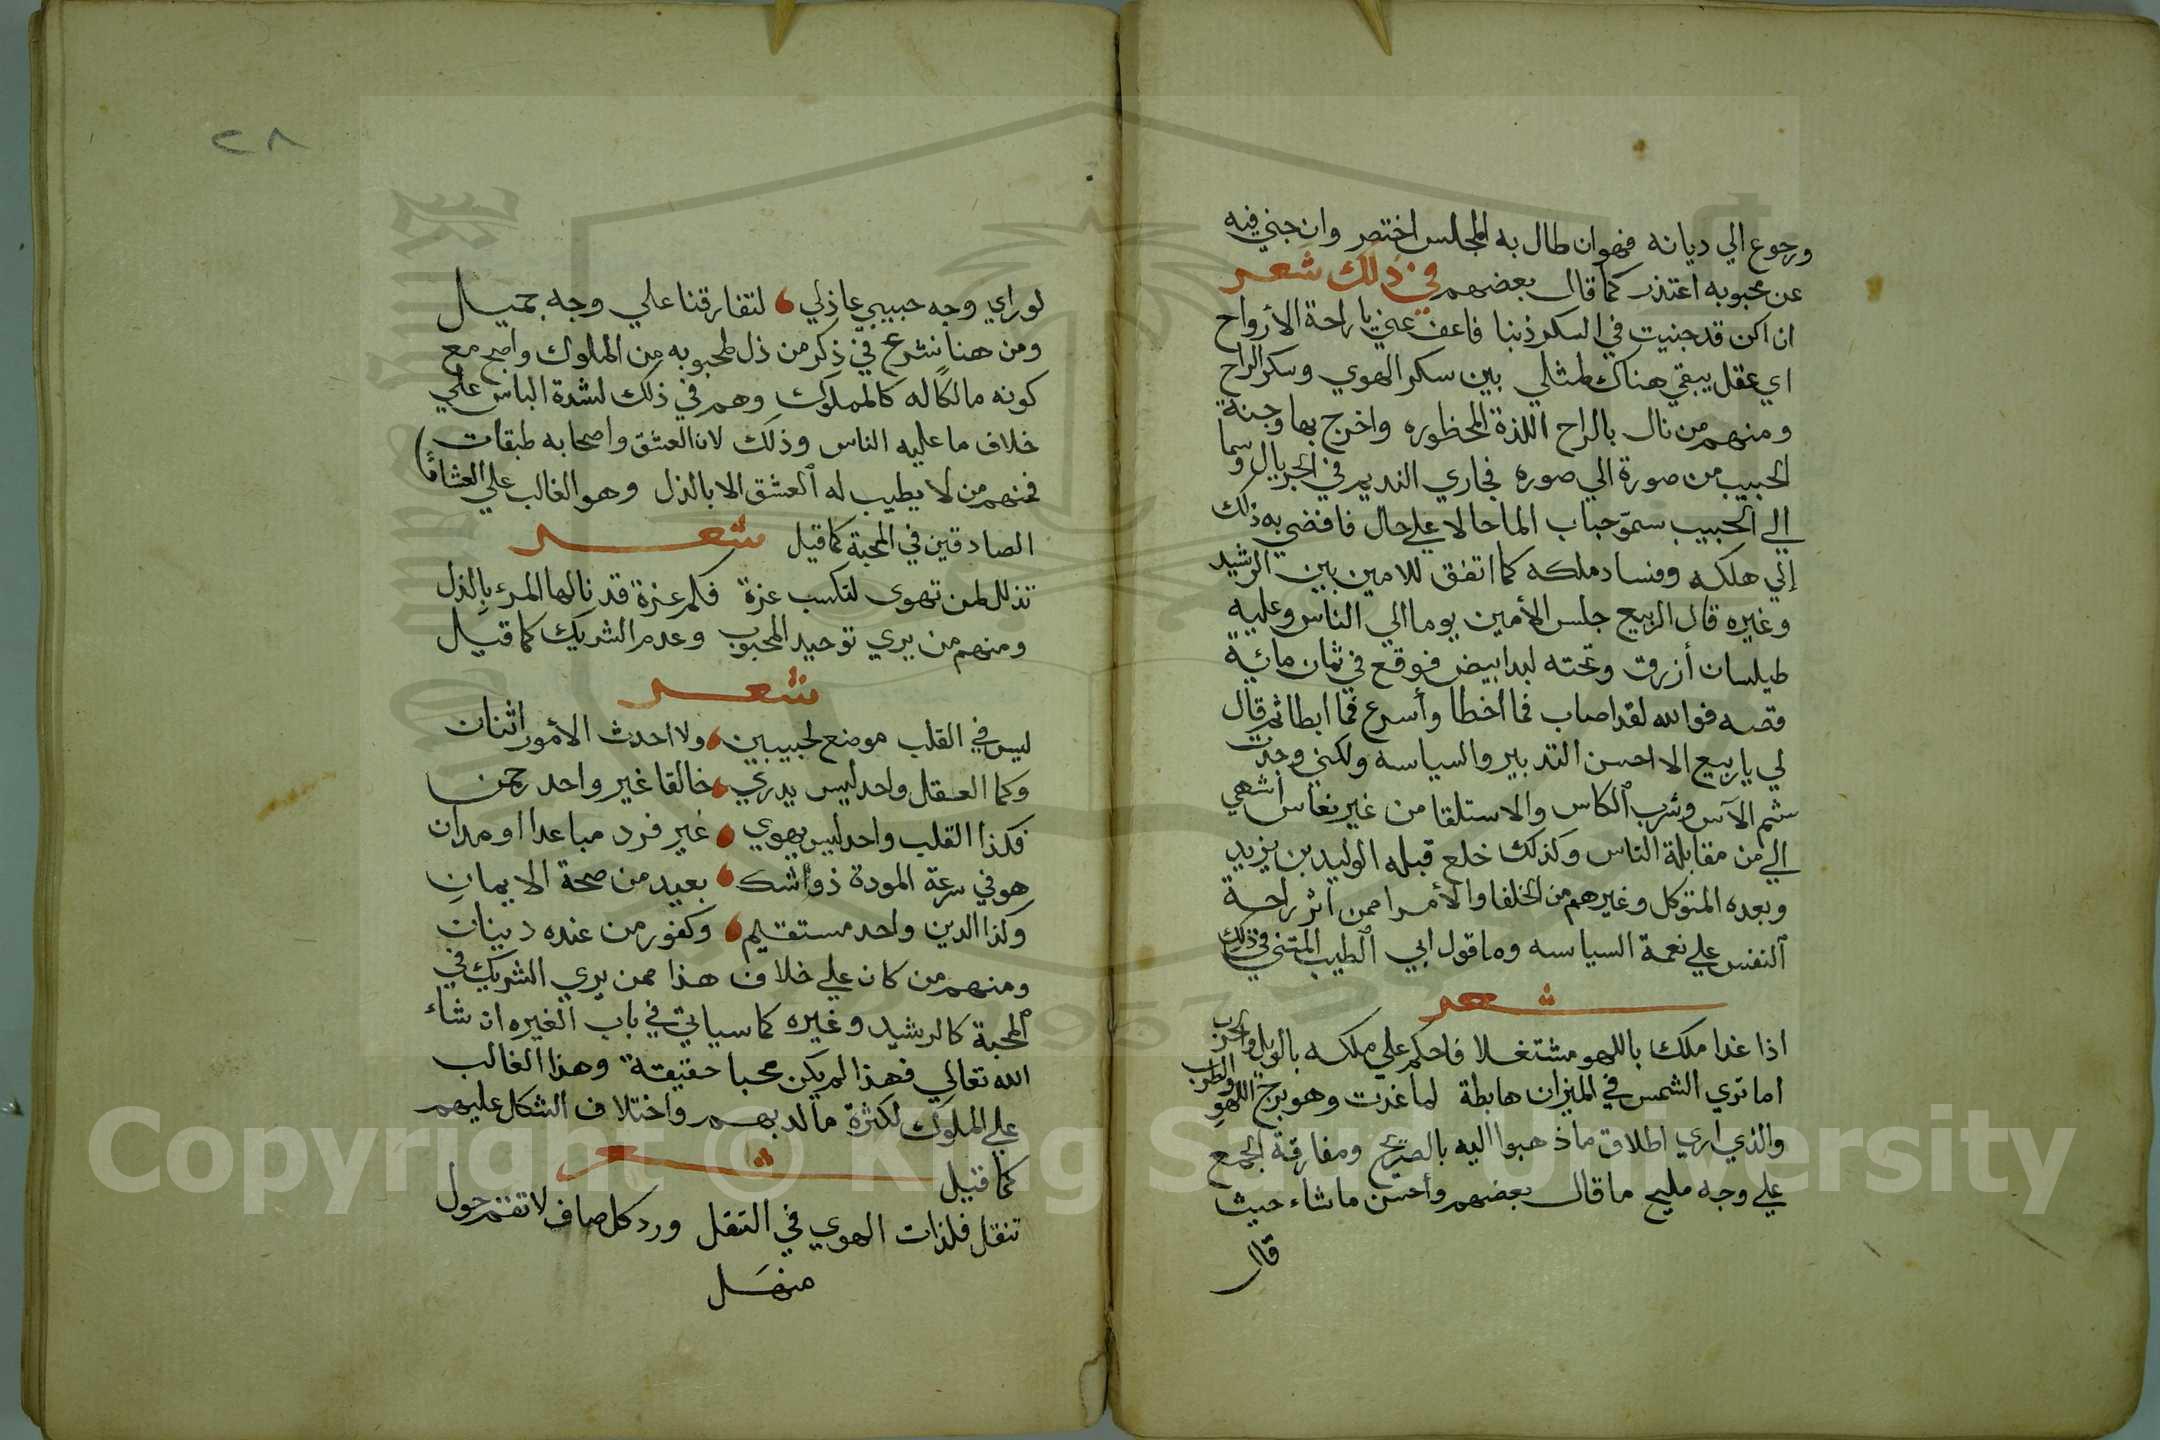 ورجوع الي ديانه فهو ان طال به المجلس اختصر وان جني فيه
عن محبوبه اعتذر كما قال بعضهم في ذلك شعر
ان اكن قد جنيت في السكر ذنبا فاعف عني يا راحة الأرواح
اي عقل يبقي هناك لمثلي بين سكر الهوي وسكر الراح
ومنهم من نال بالراح اللذة المحظوره واخرج بها وجنة
الحبيب من صورة الي صوره فجاري النديم في الجريال وسما
الي الحبيب سموّ حباب الما حالا علي حال فافضي به ذلك
إلي هلكه وفساد ملكه كما اتفق للامين بين الرشيد
وغيره قال الربيع جلس الأمين يوما الي الناس وعليه
طيلسان أزرق وتحته لبد ابيض فوقع في ثمان مائة
قصه فوالله لقد اصاب فما اخطا وأسرع فما ابطا ثم قال
لي يا ربيع الا احسن التدبير والسياسه ولكني وجدت
شم الآس وشرب الكاس والاستلقا من غير نعاس اشهي
الي من مقابلة الناس وكذلك خلع قبله الوليد بن يزيد
وبعده المتوكل وغيرهم من الخلفا والأمرا ممن اثر راحة
النفس علي نعمة السياسه وما قول ابي الطيب المتنبي في ذلك
شعر
اذا غدا ملك باللهو مشتغلا فاحكم علي ملكه بالويل والحرب
اما تري الشمس في الميزان هابطة لما غدت وهو برج اللهو والطرب
والذي اري اطلاق ما ذهبوا اليه بالصريح ومفارقة الجمع
علي وجه مليح ما قال بعضهم وأحسن ما شاء حيث
قال
٢٨
لو راي وجه حبيبي عاذلي لتفارقنا علي وجه جميل
ومن هنا نشرع في ذكر من ذل لمحبوبه من الملوك واصبح مع
كونه مالكًا له كالمملوك وهم في ذلك لشدة الباس علي
خلاف ما عليه الناس وذلك لان العشق واصحابه طبقات
فمنهم من لا يطيب له العشق الا بالذل وهو الغالب علي العشاق
الصادقين في المحبة كما قيل شعر
تذلل لمن تهوى لتكسب عزة فكم عزة قد نالها المرء بالذل
ومنهم من يري توحيد المحبوب وعدم الشريك كما قيل
شعر
ليس في القلب موضع لحبيبين ولا احدث الأمور اثنان
وكما العقل واحد ليس يدري خالقا غير واحد رحمن
فكذا القلب واحد ليس يهوي غير فرد مباعدا او مدان
هو في شرعة المودة ذو شك بعيد من صحة الايمان
وكذا الدين واحد مستقيم وكفور من عنده دينان
ومنهم من كان علي خلاف هذا ممن يري الشريك في
المحبة كالرشيد وغيره كما سياتي في باب الغيره ان شاء
الله تعالي فهذا لم يكن محبا حقيقة وهذا الغالب
علي الملوك لكثرة ما لديهم واختلاف الشكل عليهم
كما قيل شعر
تنقل فلذات الهوي في التنقل ورد كل صاف لا تقف حول
منهل
Copyright © King Saud University
1957